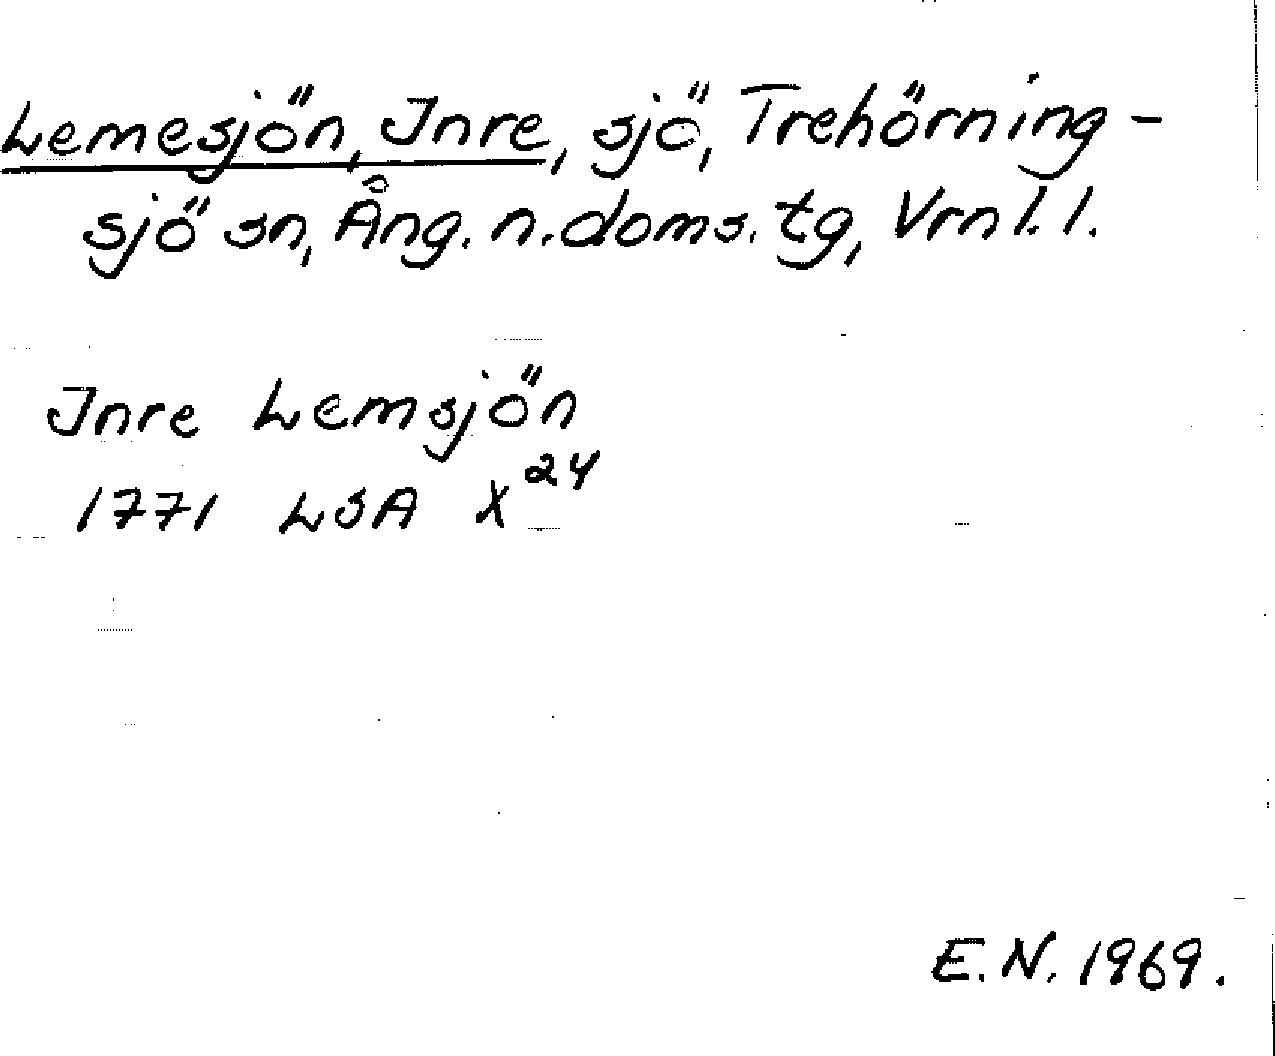 Lemesjön, Inre, sjö, Trehörning-
sjö sn, Ång. n. doms. tg, Vrnl. l.
Inre Lemsjön
1771 LSA X 24
E.N. 1969.